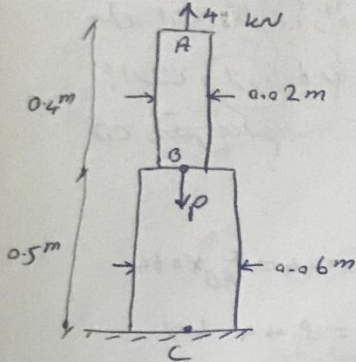 4 kN
A
0.4m
0.02m
B
P
0.5m
0.06m
C